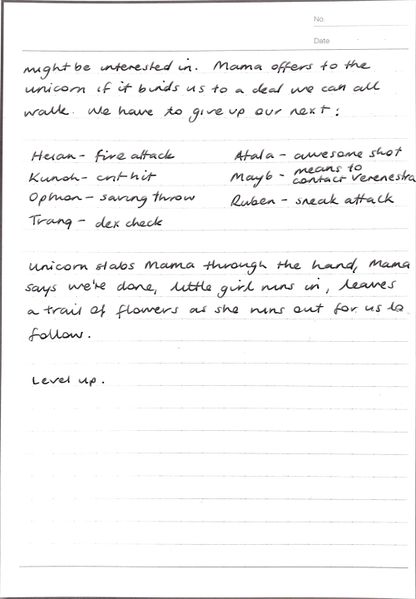 No.
Date
might be interested in. Mama offers to the
unicorn if it binds us to a deal we can all
walk. We have to give up our next:
Heian - fire attack
Atala - awesome shot
Kunoh - crit hit
Mayb - means to contact Verenestra
Ophion - saving throw
Ruben - sneak attack
Trang - dex check
Unicorn stabs Mama through the hand, Mama
says we're done, little girl runs in, leaves
a trail of flowers as she runs out for us to
follow.
Level up.